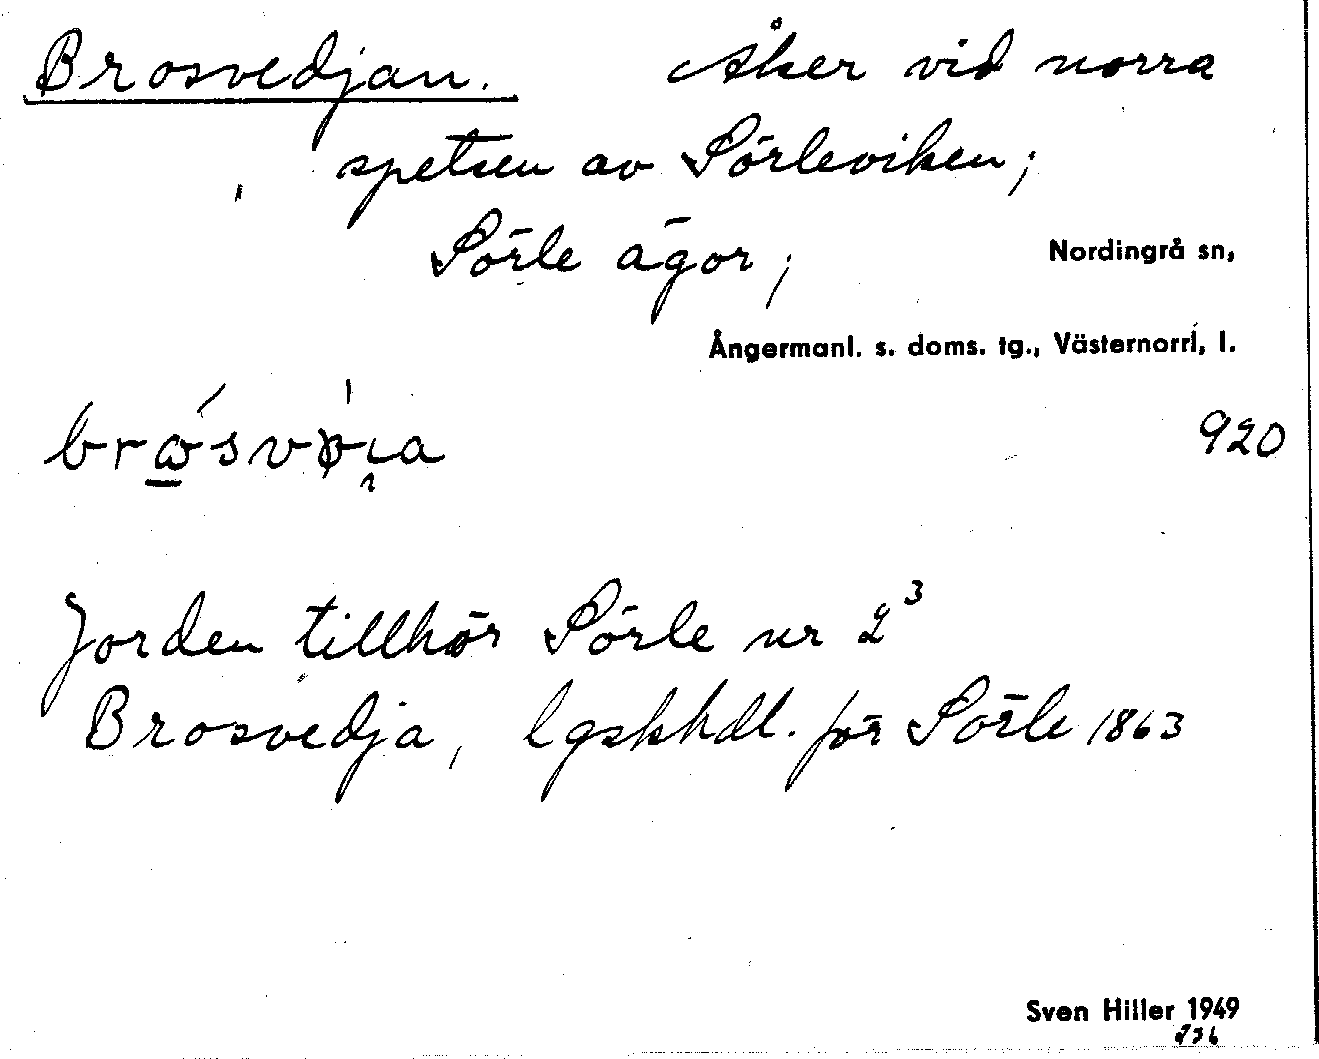 Brosvedjan. Åker vid norra
spetsen av Sörleviken;
Sörle ägor;
Nordingrå sn,
Ångermanl. s. doms. tg., Västernorrl, l.
920
Jorden tillhör Sörle nr 2³
Brosvedja, lgskhdl. för Sörle 1863
Sven Hiller 1949